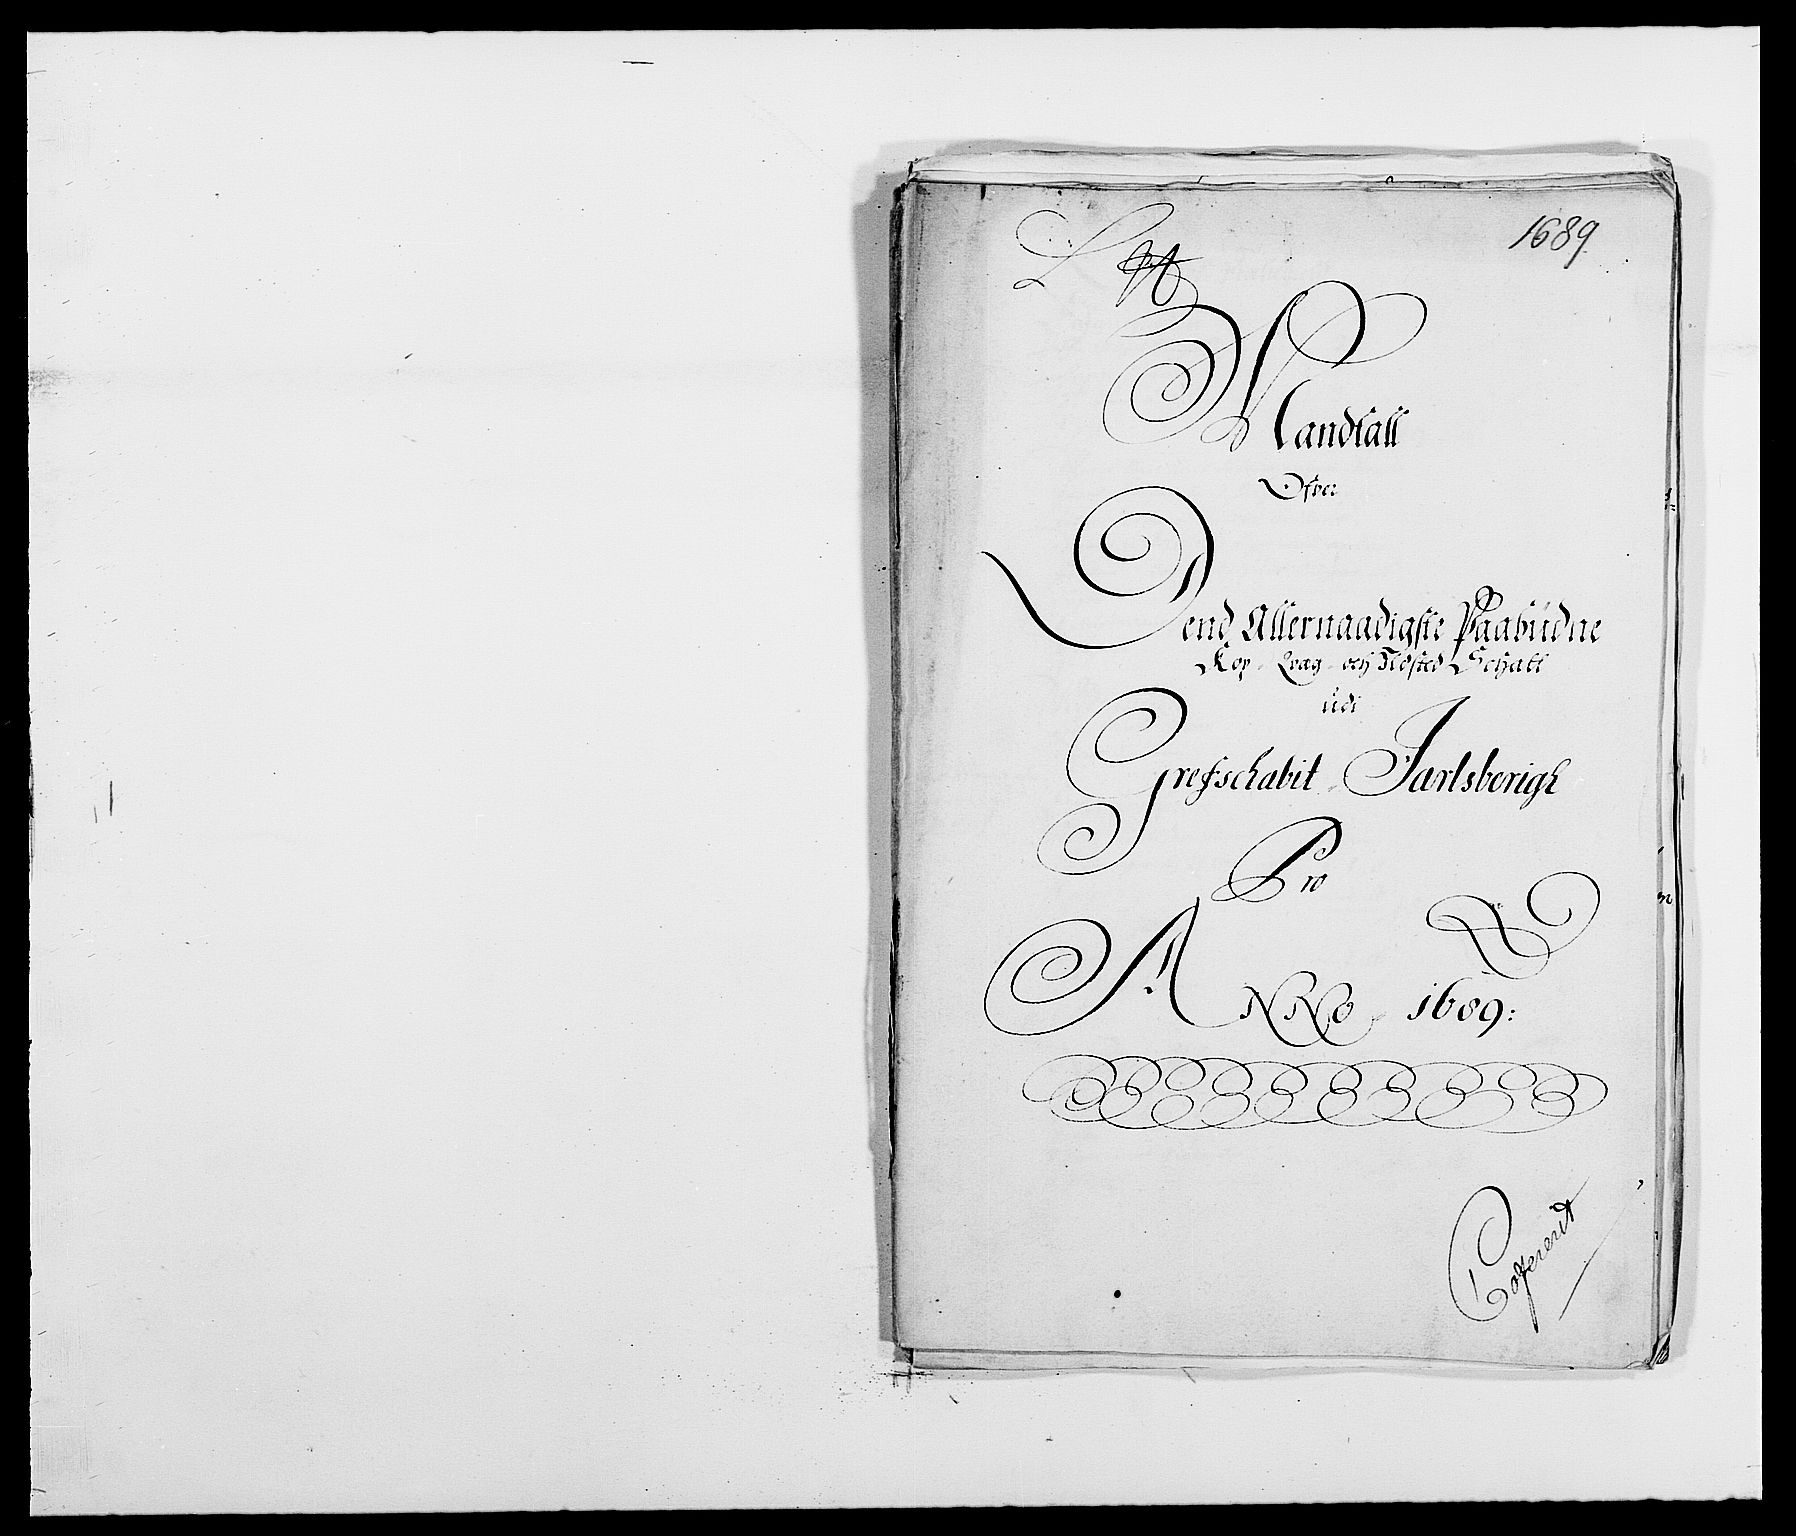 1689
Mandtall
Ofver
Dend Allernaadigste Paabüdne
Kop- Qvæg- och Ildsted Schatt
üdi
Grefschabit Jarlsberigh
Pro
ANNO 1689: